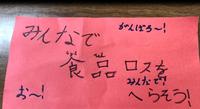 がんばろ〜!
みんなで
食品ロスを
みんなで!
へらそう!
お〜!